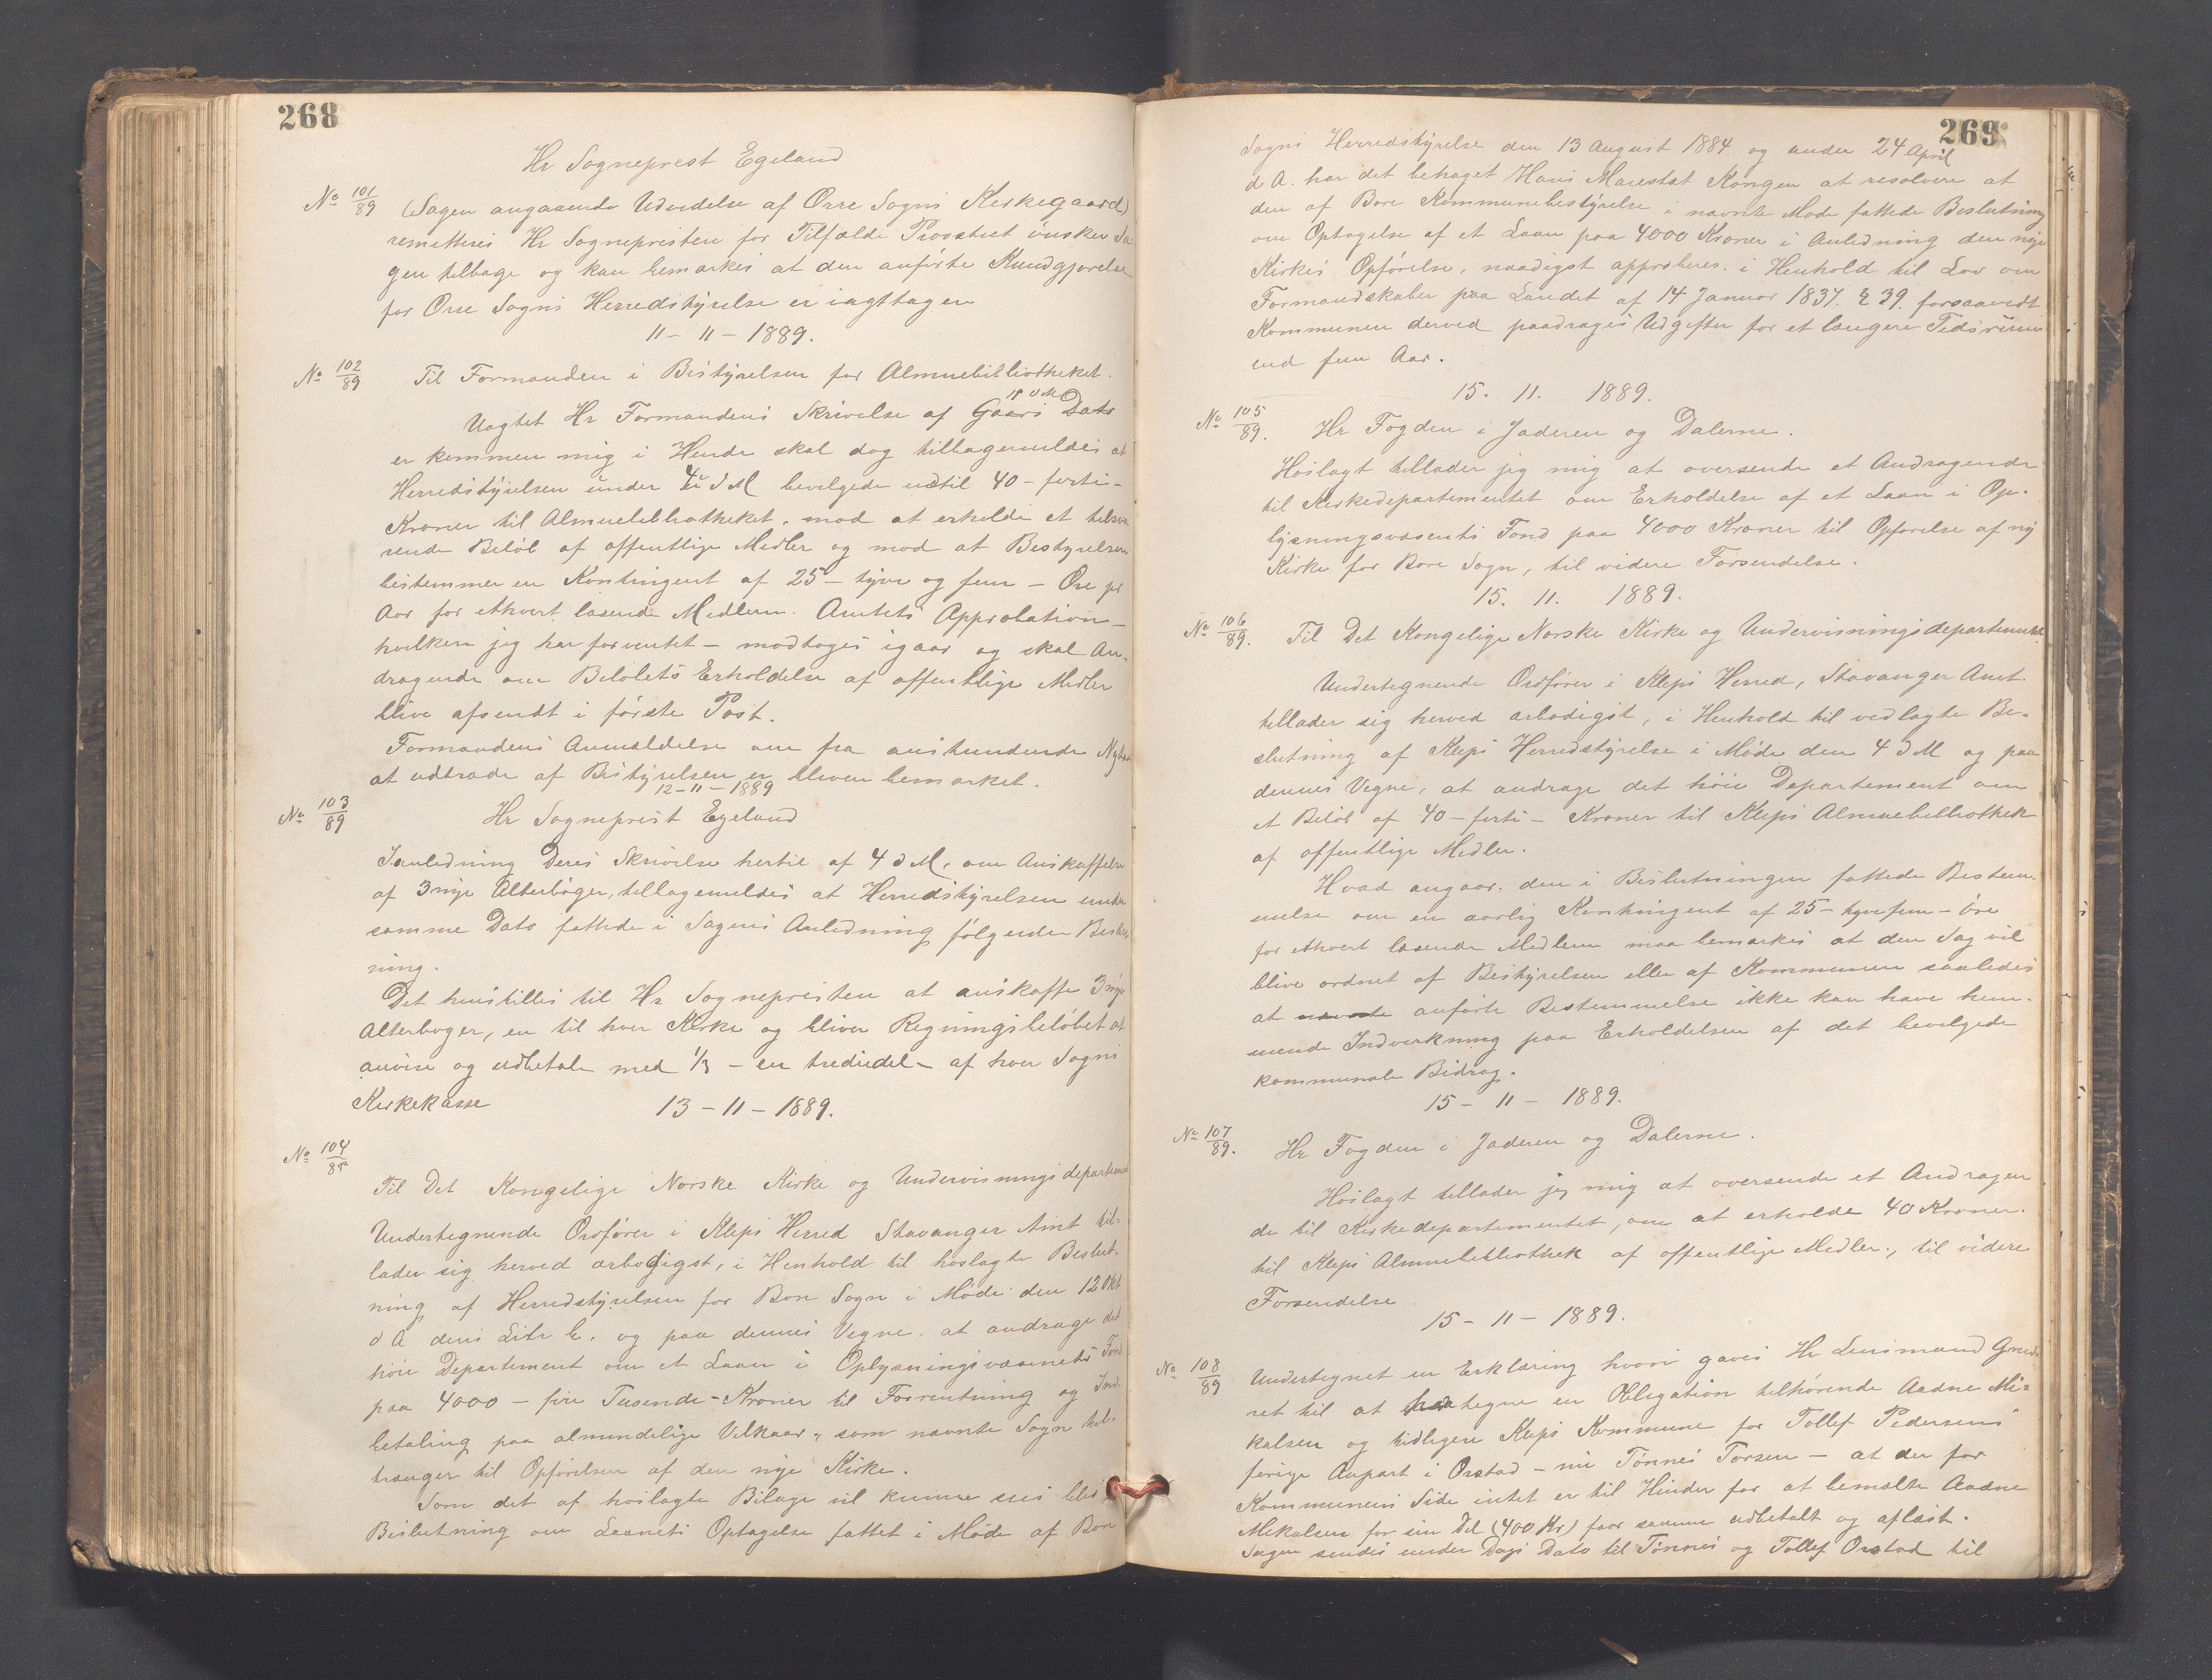 268
Hr Sogneprest Egeland
No 101/89 (Sagen angaaende Udvidelse af Orre Sogns Kirkegaard)
remitteres Hr Sognepresten for Tilfælde Provstiet ønsker Sa-
gen tilbage og kan bemærkes at den anførte Kundgjørelse
for Orre Sogns Herredstyrelse er iagttagen
11 - 11 - 1889.
No 102/89 Til Formanden i Bestyrelsen for Almuebibliotheket.
Uagtet Hr Formandens Skrivelse af Gaars Dato
er kommen mig i Hende skal dog tilbagemeldes at
Herredstyrelsen under 4 d M bevilgede indtil 40 - forti -
Kroner til Almuebibliotheket, mod at erholde et tilsva
rende Beløb af offentlige Midler og mod at Bestyrelsen
bestemmer en Kontingent af 25 - tyve og fem - Øre pr
Aar for ethvert læsende Medlem. Amtets Approbation -
hvilken jeg har forventet - modtoges igaar og skal An-
dragende om Beløbets Erholdelse af offentlige Midler
blive afsendt i første Post.
Formandens Anmeldelse om fra anstundende Nytaar
at udtræde af Bestyrelsen er bleven bemærket.
12 - 11 - 1889
No 103/89 Hr Sogneprest Egeland
I anledning Deres Skrivelse hertil af 4 d M. om Anskaffelse
af 3 nye Alterbøger, tilbagemeldes at Herredstyrelsen under
samme Dato fattede i Sagens Anledning følgende Beslut-
ning.
Det henstilles til Hr Sognepresten at anskaffe 3 nye
Alterbøger, en til hver Kirke og bliver Regningsbeløbet at
anvise og udbetale med 1/3 - en trediedel - af hver Sogns
Kirkekasse 13 - 11 - 1889.
No 104/89
Til Det Kongelige Norske Kirke og Undervisnings departement
Undertegnende Ordfører i Kleps Herred Stavanger Amt til-
lader sig herved ærbødigst, i Henhold til hoslagte Beslut-
ning af Herredstyrelsen for Bore Sogn i Møde den 12 Okt
d A dens Litr b. og paa dennes Vegne, at andrage det
høie Departement om et Laan i Oplysningsvæsenets Fond
paa 4000 - fire Tusende - Kroner til Forrentning og Ind-
betaling paa almindelige Vilkaar, som nævnte Sogn til-
trænger til Opførelsen af den nye Kirke.
Som det af hoslagte Bilage vil kunne sees blev
Beslutning om Laanets Optagelse fattet i Møde af Bore
269
Sogns Herredstyrelse den 13 August 1884 og under 24 April
d A. har det behaget Hans Majestæt Kongen at resolvere at
den af Bore Kommunebestyrelse i nævnte Møde fattede Beslutning
om Optagelse af et Laan paa 4000 Kroner i Anledning den nye
Kirkes Opførelse, naadigst approberes i Henhold til Lov om
Formandskaber paa Landet af 14 Januar 1837. § 39 forsaavidt
Kommunen derved paadrages Udgifter for et længere Tidsrum
end fem Aar.
15. 11. 1889.
No 105/89. Hr Fogden i Jæderen og Dalerne.
Hoslagt tillader jeg mig at oversende et Andragende
til Kirkedepartementet om Erholdelse af et Laan i Op-
lysningsvæsents Fond paa 4000 Kroner til Opførelse af ny
Kirke for Bore Sogn, til videre Forsendelse.
15. 11. 1889.
No 106/89. Til Det Kongelige Norske Kirke og Undervisningsdepartement.
Undertegnende Ordfører i Kleps Herred, Stavanger Amt.
tillader sig herved ærbødigst, i Henhold til vedlagte Be-
slutning af Kleps Herredstyrelse i Møde den 4 d M og paa
dennes Vegne, at andrage det høie Departement om
et Beløb af 40 - forti - Kroner til Kleps Almuebibliothek
af offentlige Midler.
Hvad angaar den i Beslutningen fattede Bestem-
melse om en aarlig Kontingent af 25 - tyvefem - Øre
for ethvert læsende Medlem maa bemærkes at den Sag vil
blive ordnet af Bestyrelsen eller af Kommunen saaledes
at nævnte anførte Bestemmelse ikke kan have hem-
mende Indvirkning paa Erholdelsen af det bevilgede
kommunale Bidrag.
15 - 11 - 1889.
No 107/89. Hr Fogden i Jæderen og Dalerne.
Hoslagt tillader jeg mig at oversende et Andragen
de til Kirkedepartementet, om at erholde 40 Kroner.
til Kleps Almuebibliothek af offentlige Midler, til videre
Forsendelse
15 - 11 - 1889.
No 108/89 Undertegnet en Erklæring hvori gaves Hr Lensmand
ret til at tegne en Obligation tilhørende Aadne Mi-
kalsen og tidligere Kleps Kommune for Tollef Pedersens
forige Anpart i Orstad - nu Tønnes Torsen - at der for
Kommunens Side intet er til Hinder for at bemeldte Aadne
Mikalsen for sin Del (400 Kr) faar samme udbetalt og aflæst.
Sagen sendes under Dags Dato til Tønnes og Tollef Orstad til